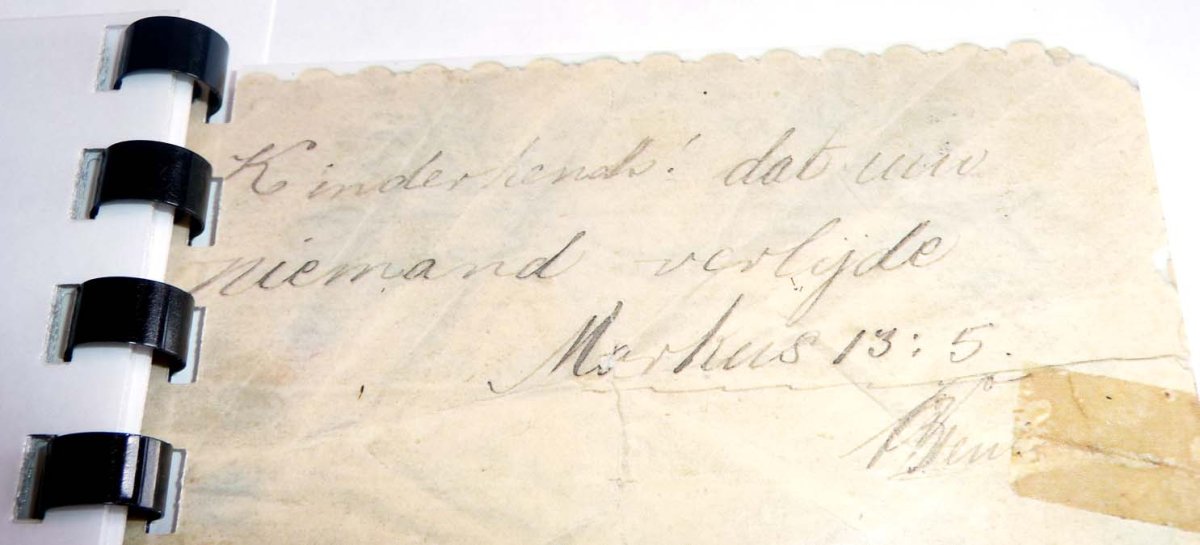 Kinderkens! dat uw
niemand verlijde
Markus 13:5.